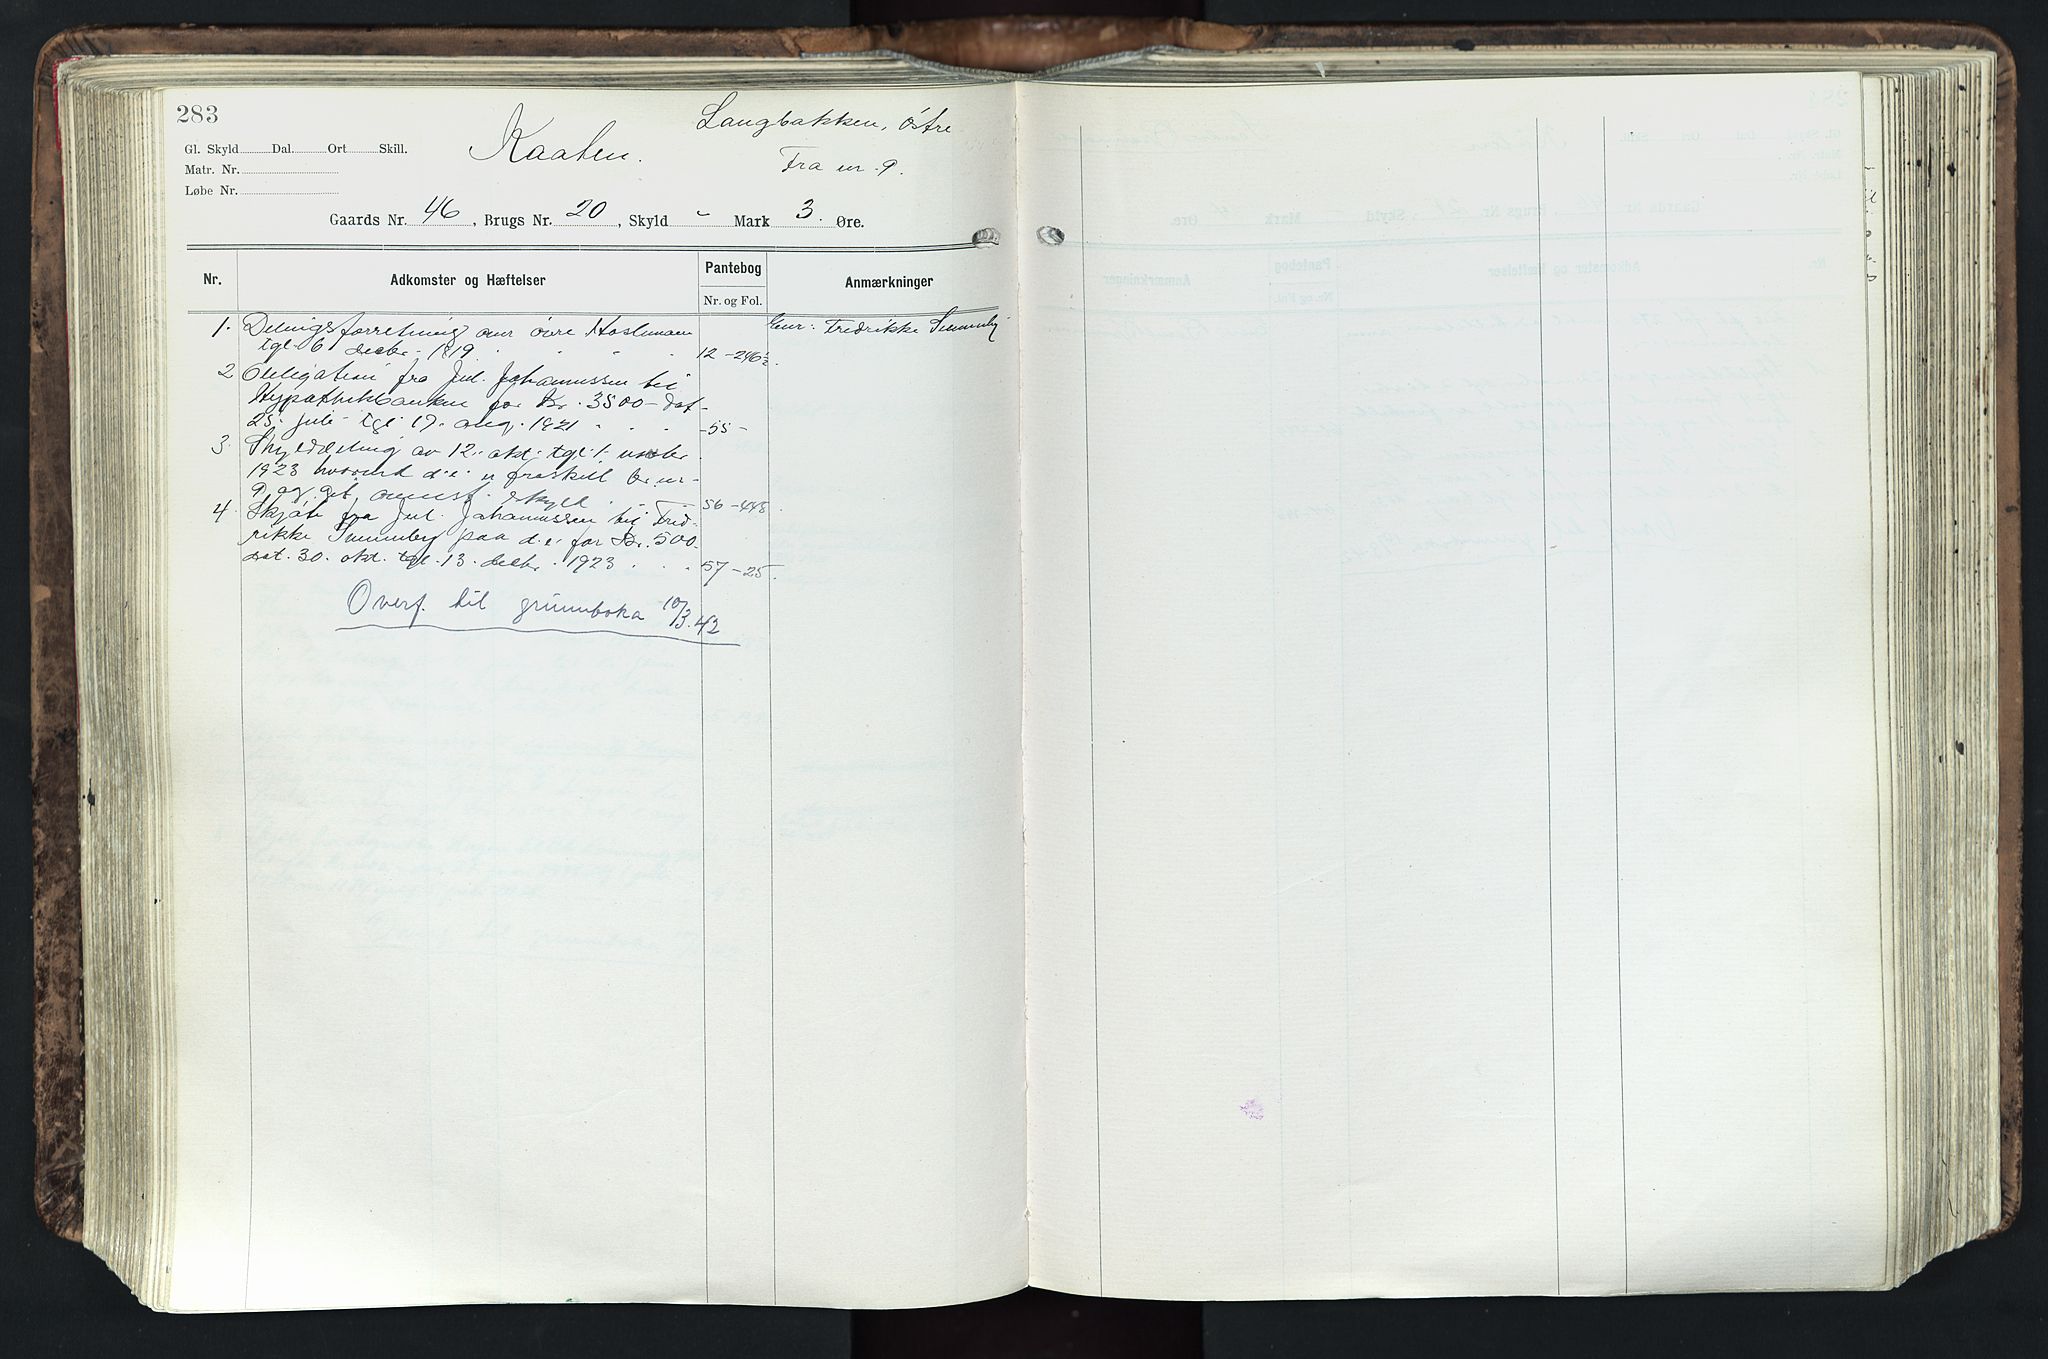 283
Langbakken, Østre
Kaaten.
Fra nr. 9.
Gl. Skyld Dal. Ort Skill.
Matr. Nr.
Løbe Nr.
Gaards Nr. 46, Brugs Nr. 20, Skyld " Mark 3. Øre.
Nr. Adkomster og Hæftelser Pantebog Anmærkninger
Nr. og Fol.
1. Delingsforretning om övre
tgl. 6 decbr. 1819 12 - 246½
Fredrikke
2 Obligation fra Jul. Johannessen til
Hypothekbanken for Kr. 3500 - dat.
25. juli tgl 17. aug. 1921 -55-
3. Skylddeling av 12. okt. tgl. 1. novbr
1923 hvorved d. e. er fraskilt br. nr.
9 og git omst. skyld 56 - 448
4. Skjöte fra Jul. Johannessen til Fred-
rikke paa d. e. for Kr. 500
dat. 30. okt. tgl. 13. decbr. 1923 57 - 25.
Overf. til grunnboka 10/3.42